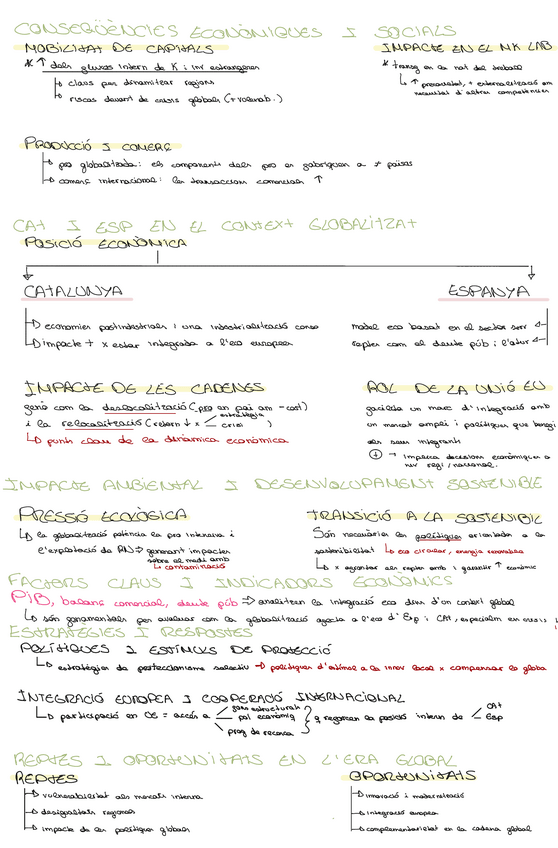 CONSEQÜÈNCIES ECONÒMIQUES I SOCIALS
MOBILITAT DE CAPITALS
* ↑ dels fluxos intern de K i inv estrangeres
↳ claus per dinamitzar regions
↳ riscos davant de crisis globals (+ vulnerab.)
IMPACTE EN EL MK LAB
* transf en la nat del treball
↳ ↑ precarietat, + externalització am
necessitat d'altres competències
PRODUCCIÓ I COMERÇ
↳ pro globalitzada: els components dels pro es fabriquen a ≠ països
↳ comerç internacional: les transaccions comercials ↑
CAT I ESP EN EL CONTEXT GLOBALITZAT
POSICIÓ ECONÒMICA
CATALUNYA
→ economies postindustrials i una industrialització conso
→ impacte + x estar integrada a l'eco europea
ESPANYA
model eco basat en el sector serv
reptes com el deute púb i l'atur
IMPACTE DE LES CADENES
genò com la deslocalització (pro en país am - cost)
i la relocalització (retorn ↓ x estratègia crisi)
↳ punts claus de la dinàmica econòmica
ROL DE LA UNIÓ EU
facilita un marc d'integració amb
un mercat ampli i polítiques que benefi
als seus integrants
→ implica decisions econòmiques a
niv regi/nacional.
IMPACTE AMBIENTAL I DESENVOLUPAMENT SOSTENIBLE
PRESSIÓ ECOLÒGICA
↳ la globalització potencia la pro intensiva i
l'explotació de RN → generant impactes
sobre el medi amb
↳ contaminació
TRANSICIÓ A LA SOSTENIBIL
Són necessàries les polítiques orientades a la
sostenibilitat ↳ eco circular, energia renovable
↳ x afrontar els reptes amb i garantir ↑ econòmic
FACTORS CLAUS I INDICADORS ECONÒMICS
PIB, balanç comercial, deute púb → analitzen la integració eco dins d'un context global
↳ són fonamentals per avaluar com la globalització afecta a l'eco d'Esp i CAT, especialm en crisis i
ESTRATÈGIES I RESPOSTES
POLÍTIQUES I ESTÍMULS DE PROTECCIÓ
↳ estratègies de proteccionisme selectiu → polítiques d'estímul a la innov local x compensar la globa
INTEGRACIÓ EUROPEA I COOPERACIÓ INTERNACIONAL
↳ participació en OE = accés a fons estructurals
pol econòmiq
prog de recerca
q reforcen la posició intern de CAT
Esp
REPTES I OPORTUNITATS EN L'ERA GLOBAL
REPTES
→ vulnerabilitat als mercats interna
→ desigualtats regionals
→ impacte de les polítiques globals
OPORTUNITATS
→ innovació i modernització
→ integració europea
→ complementarietat en la cadena global